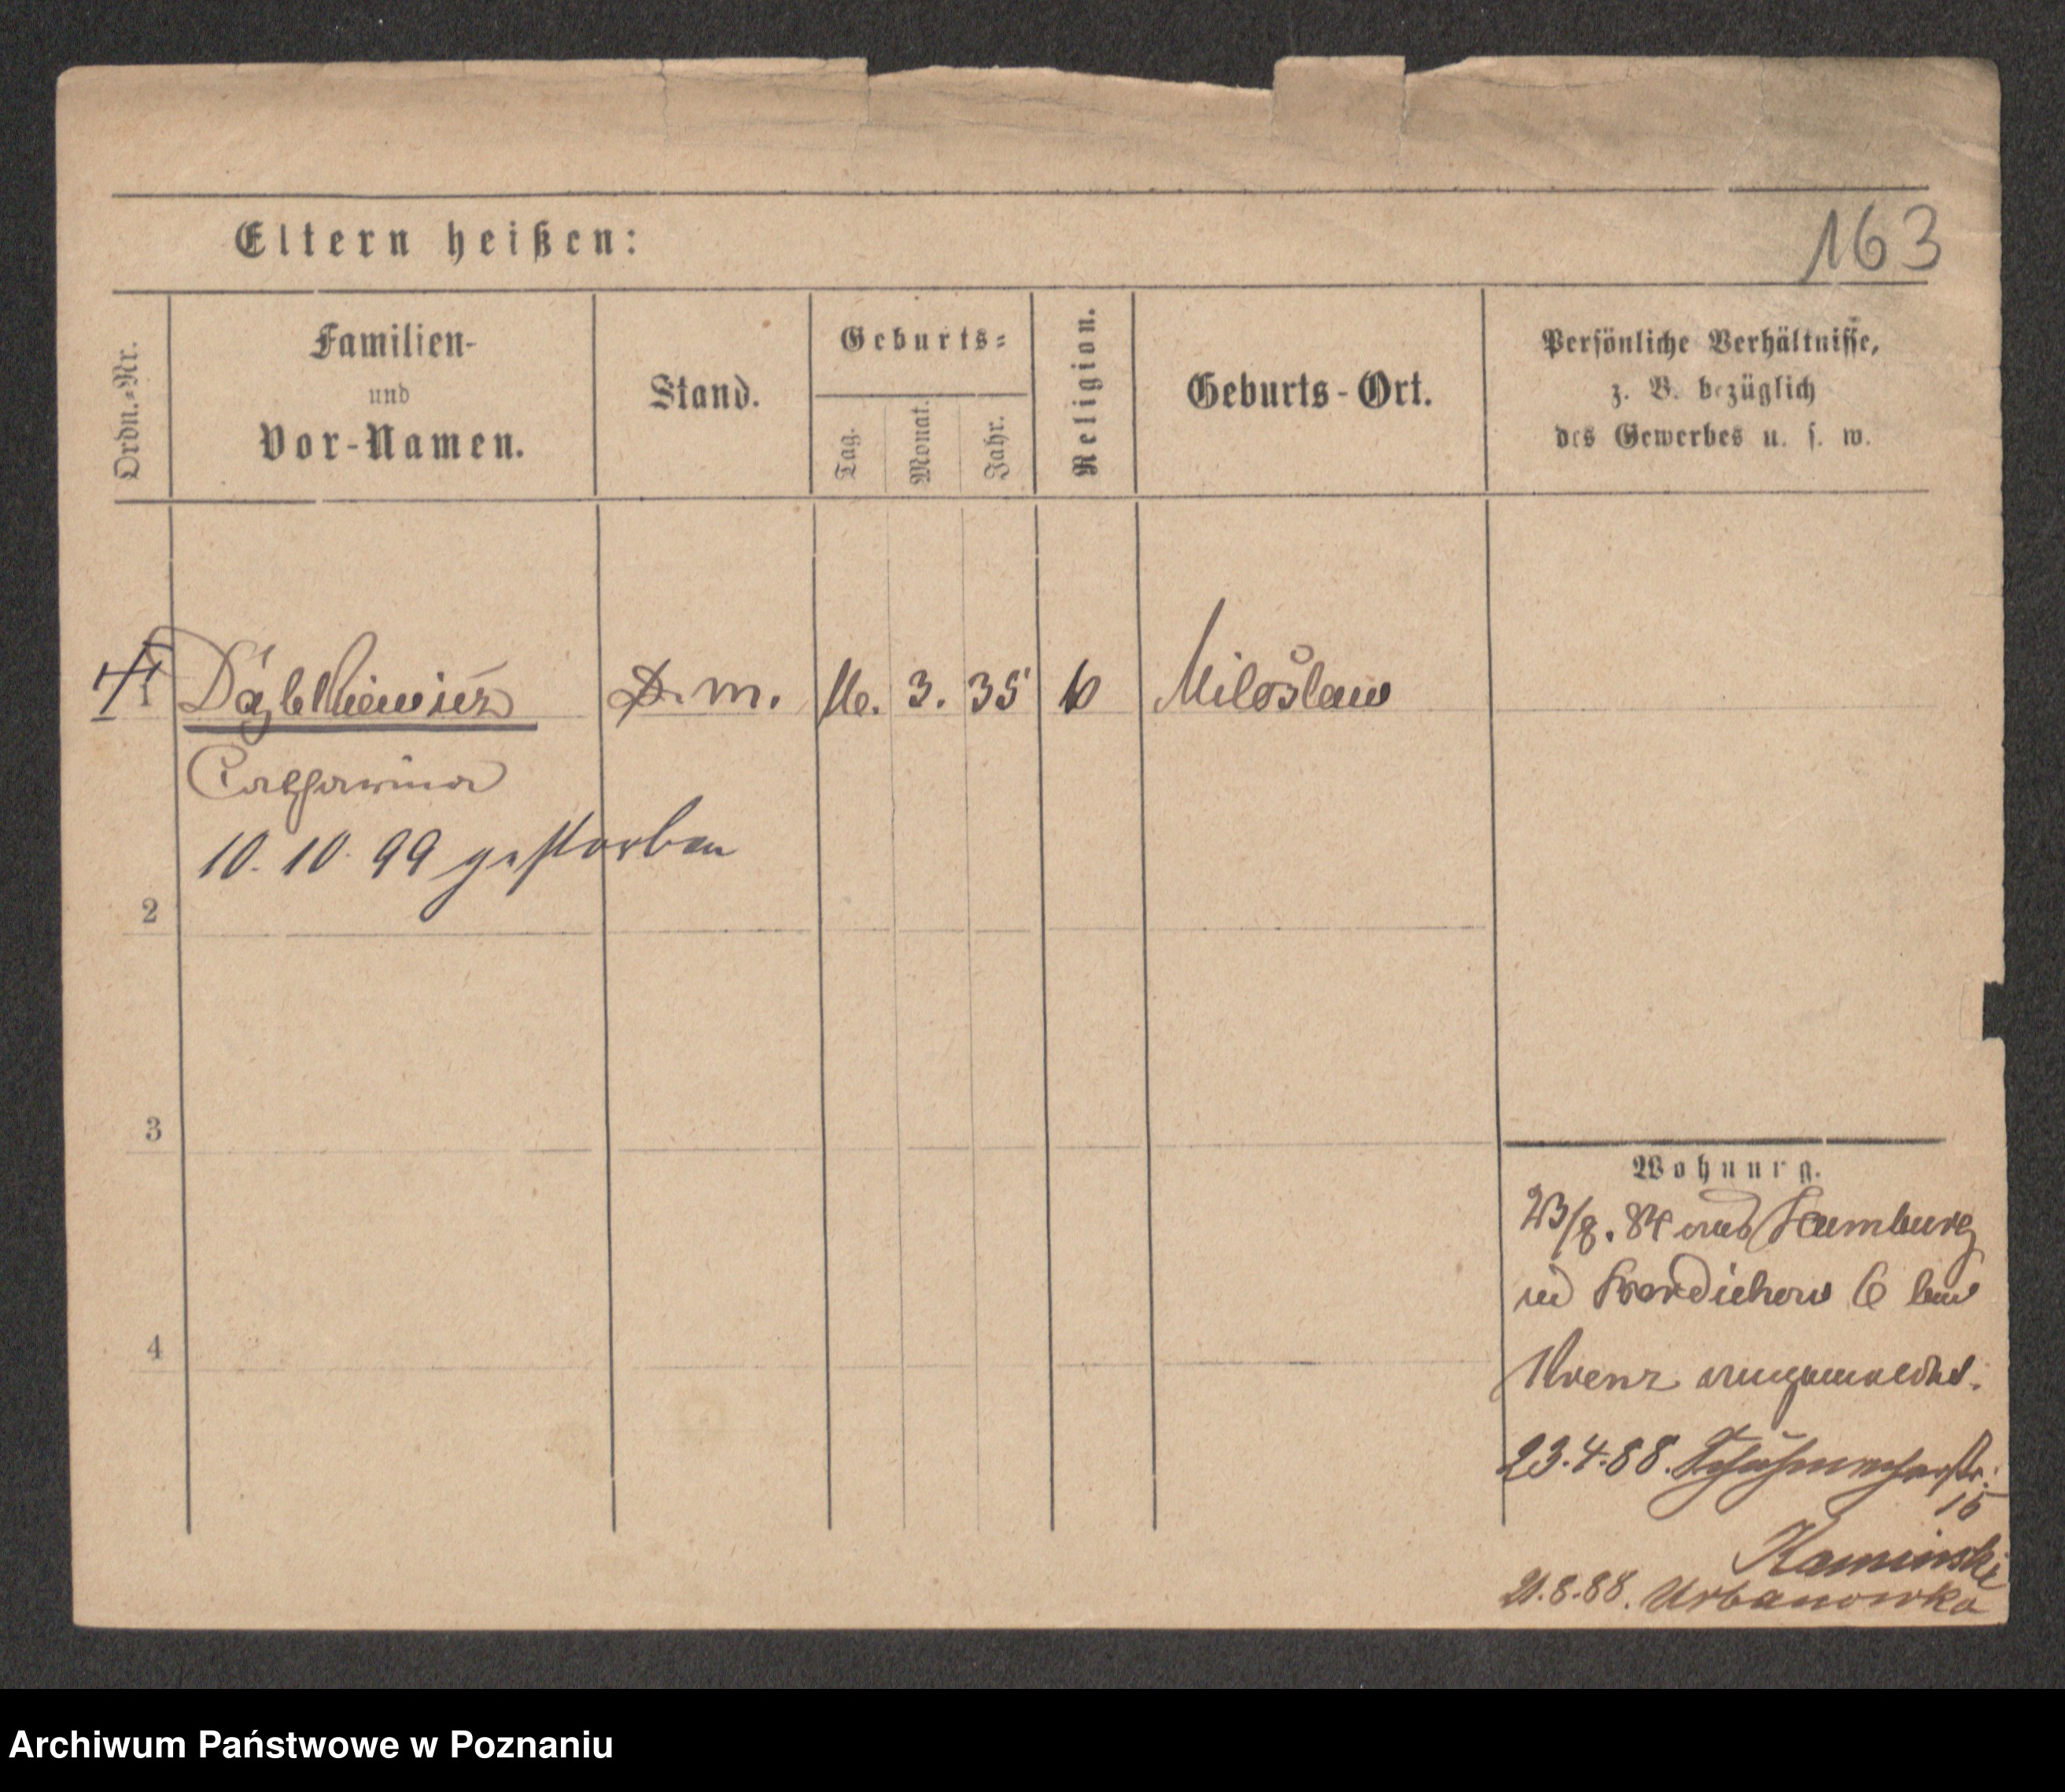 163
Eltern heißen:
Ordn.-Nr.
Familien-
und
Vor-Namen.
Stand.
Geburts-
Tag.
Monat.
Jahr.
Religion.
Geburts-Ort.
Persönliche Verhältnisse,
z. B. bezüglich
des Gewerbes u. s. w.
1
D. m.
16. 3. 35
Miloslaw
Catharina
10. 10. 99 gestorben
2
3
4
Wohnung.
23/8. 84 aus
6 bei
angemeldet.
23.4.88. Schuhmacherstr.
15
Kaminski
21.8.88. Urbanowka
Archiwum Państwowe w Poznaniu